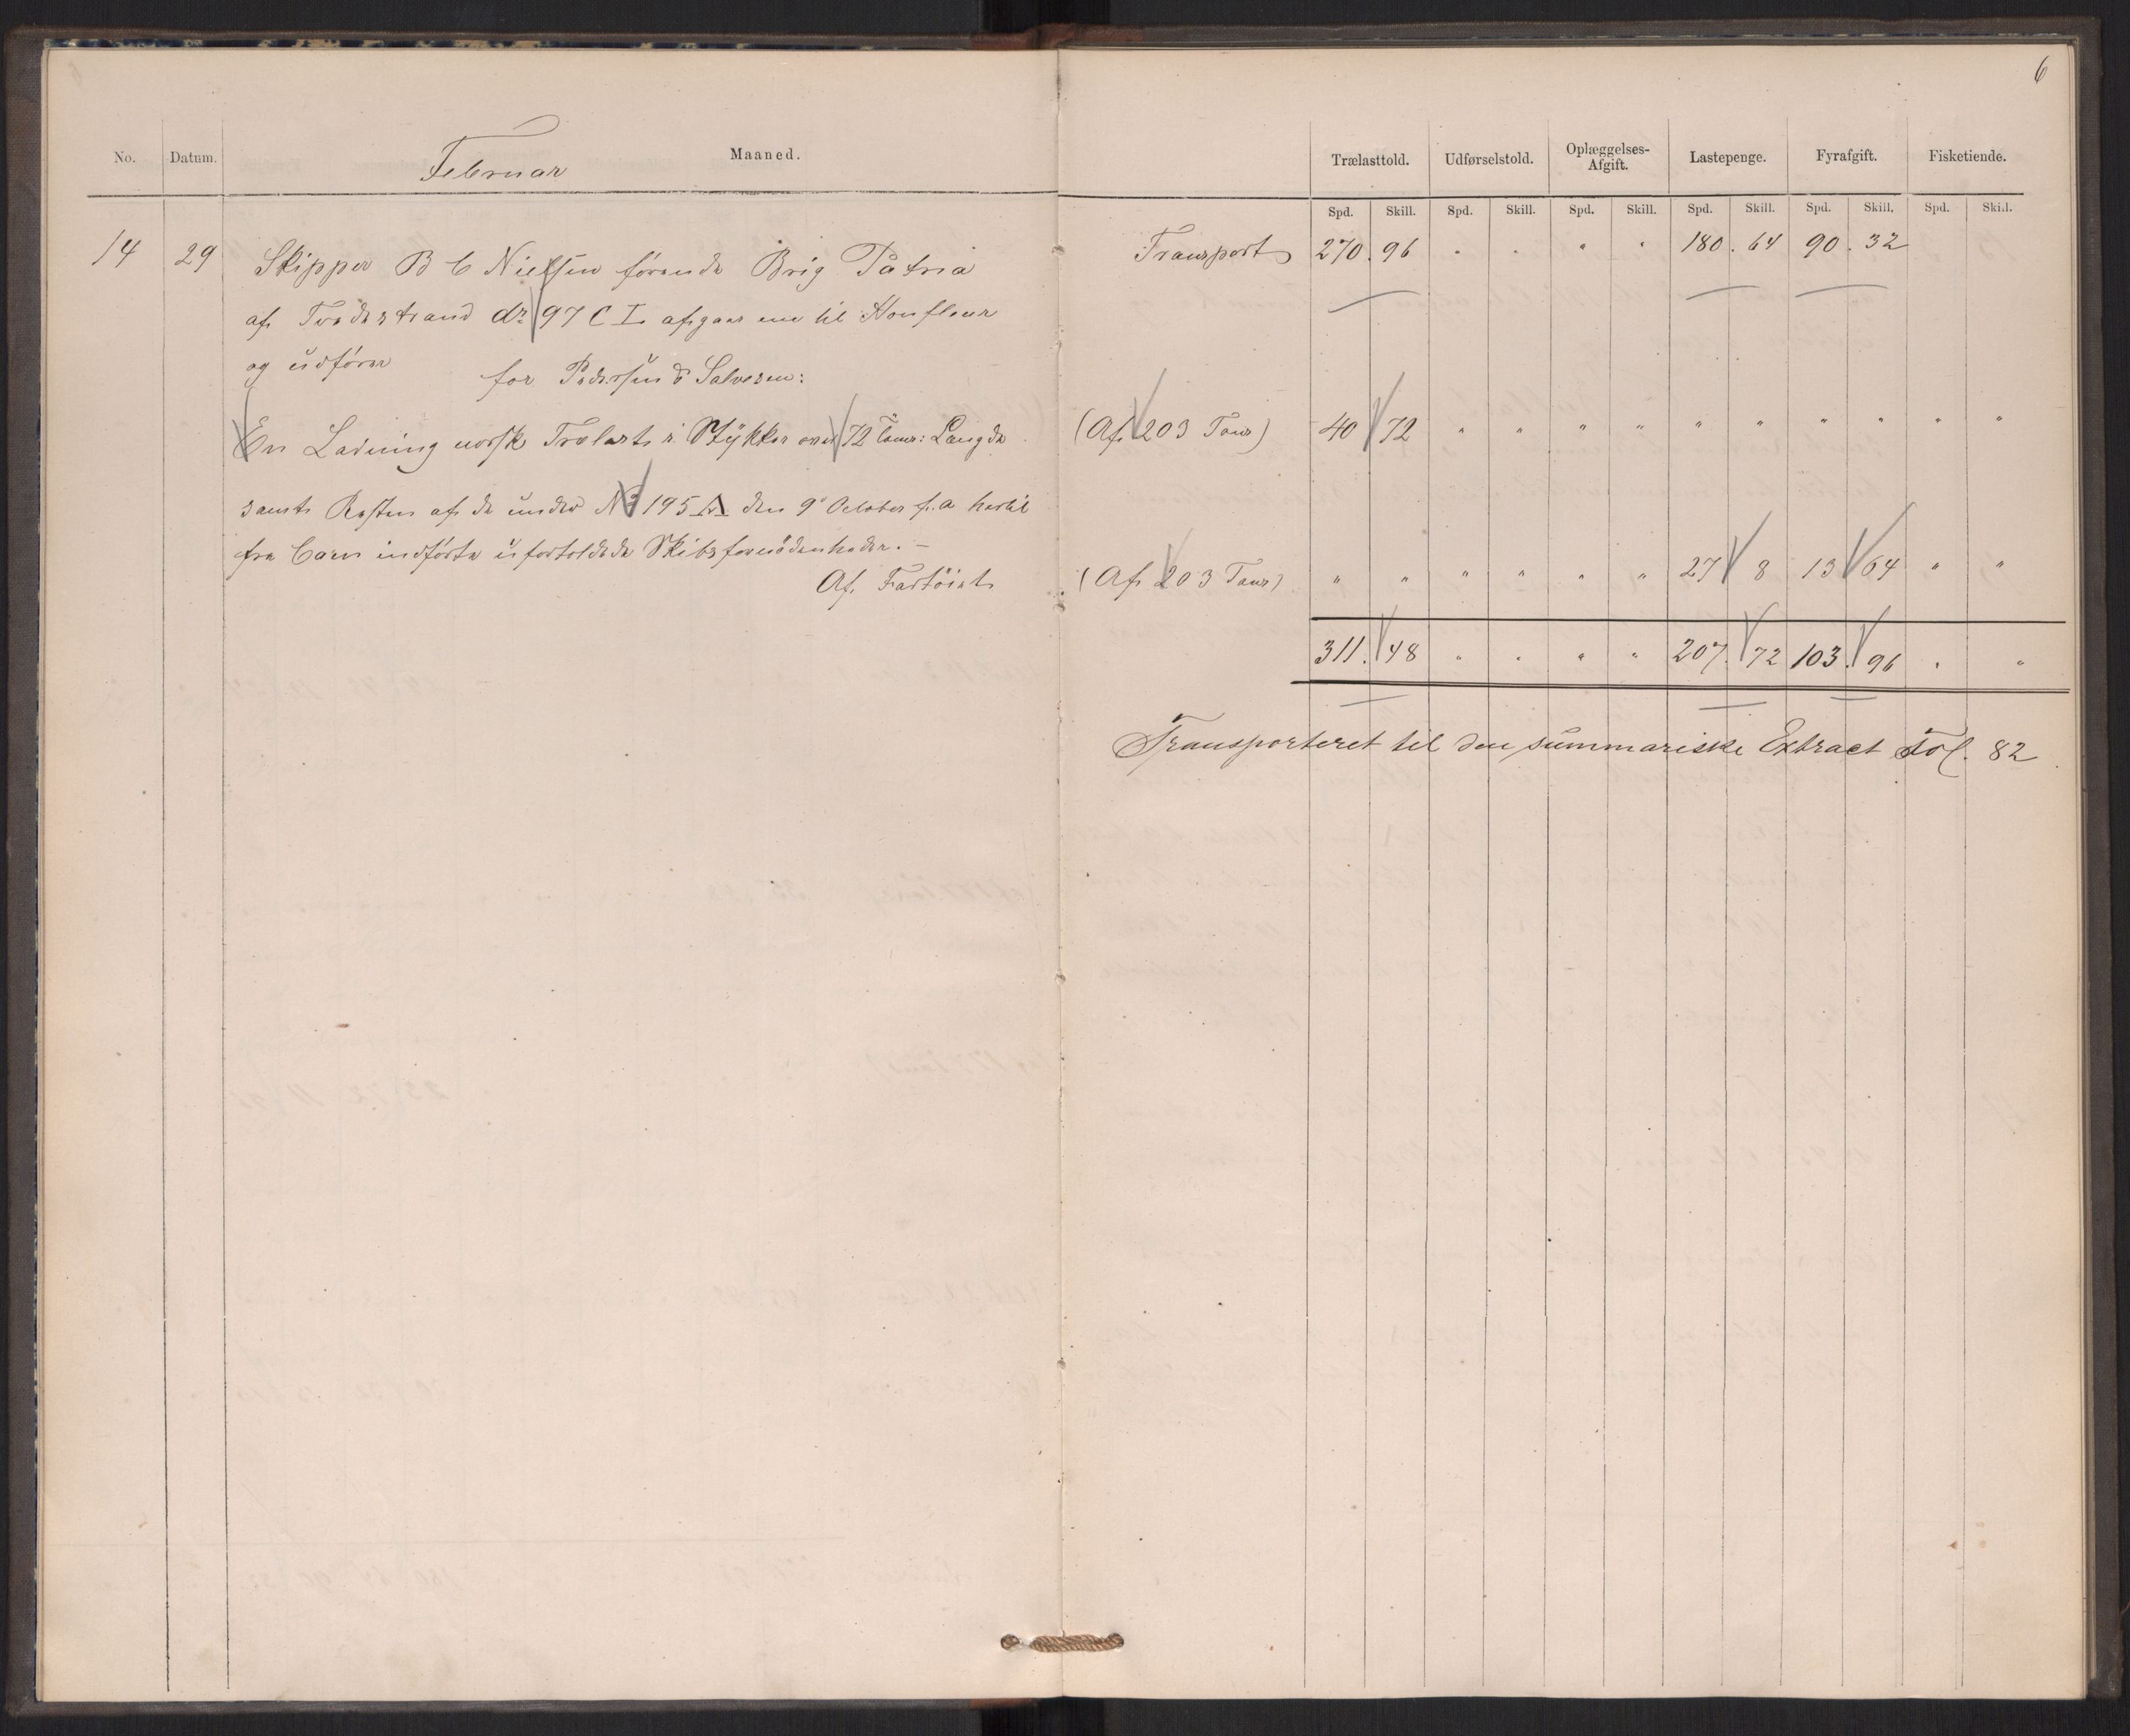 6
No. Datum. Februar Maaned.
Trælasttold. Udførselstold. Oplæggelses-Afgift. Lastepenge. Fyrafgift. Fisketiende.
Spd. Skill. Spd. Skill. Spd. Skill. Spd. Skill. Spd. Skill. Spd. Skill.
Transport 270. 96 " " " " 180. 64 90. 32
14 29 Skipper B C Nielsen förende Brig Patria
af Tvedestrand dr 97 C L afgaar nu til Honfleur
og udfører for Pedersen & Salvesen:
En Ladning norsk Trælast i Stykker over 72 Tom: Længde (Af 203 Tons) 40 72 " " " " " " " " " "
samt Resten af de under No 195 A den 9de October f. a hertil
fra Caen indførte ufortoldede Skibsfornødenheder. –
Af Fartöiet (Af 203 Tons) " " " " " " 27 8 13 64 " "
311. 48 " " " " 207. 72 103. 96 " "
Transporteret til den summariske Extract Fol. 82